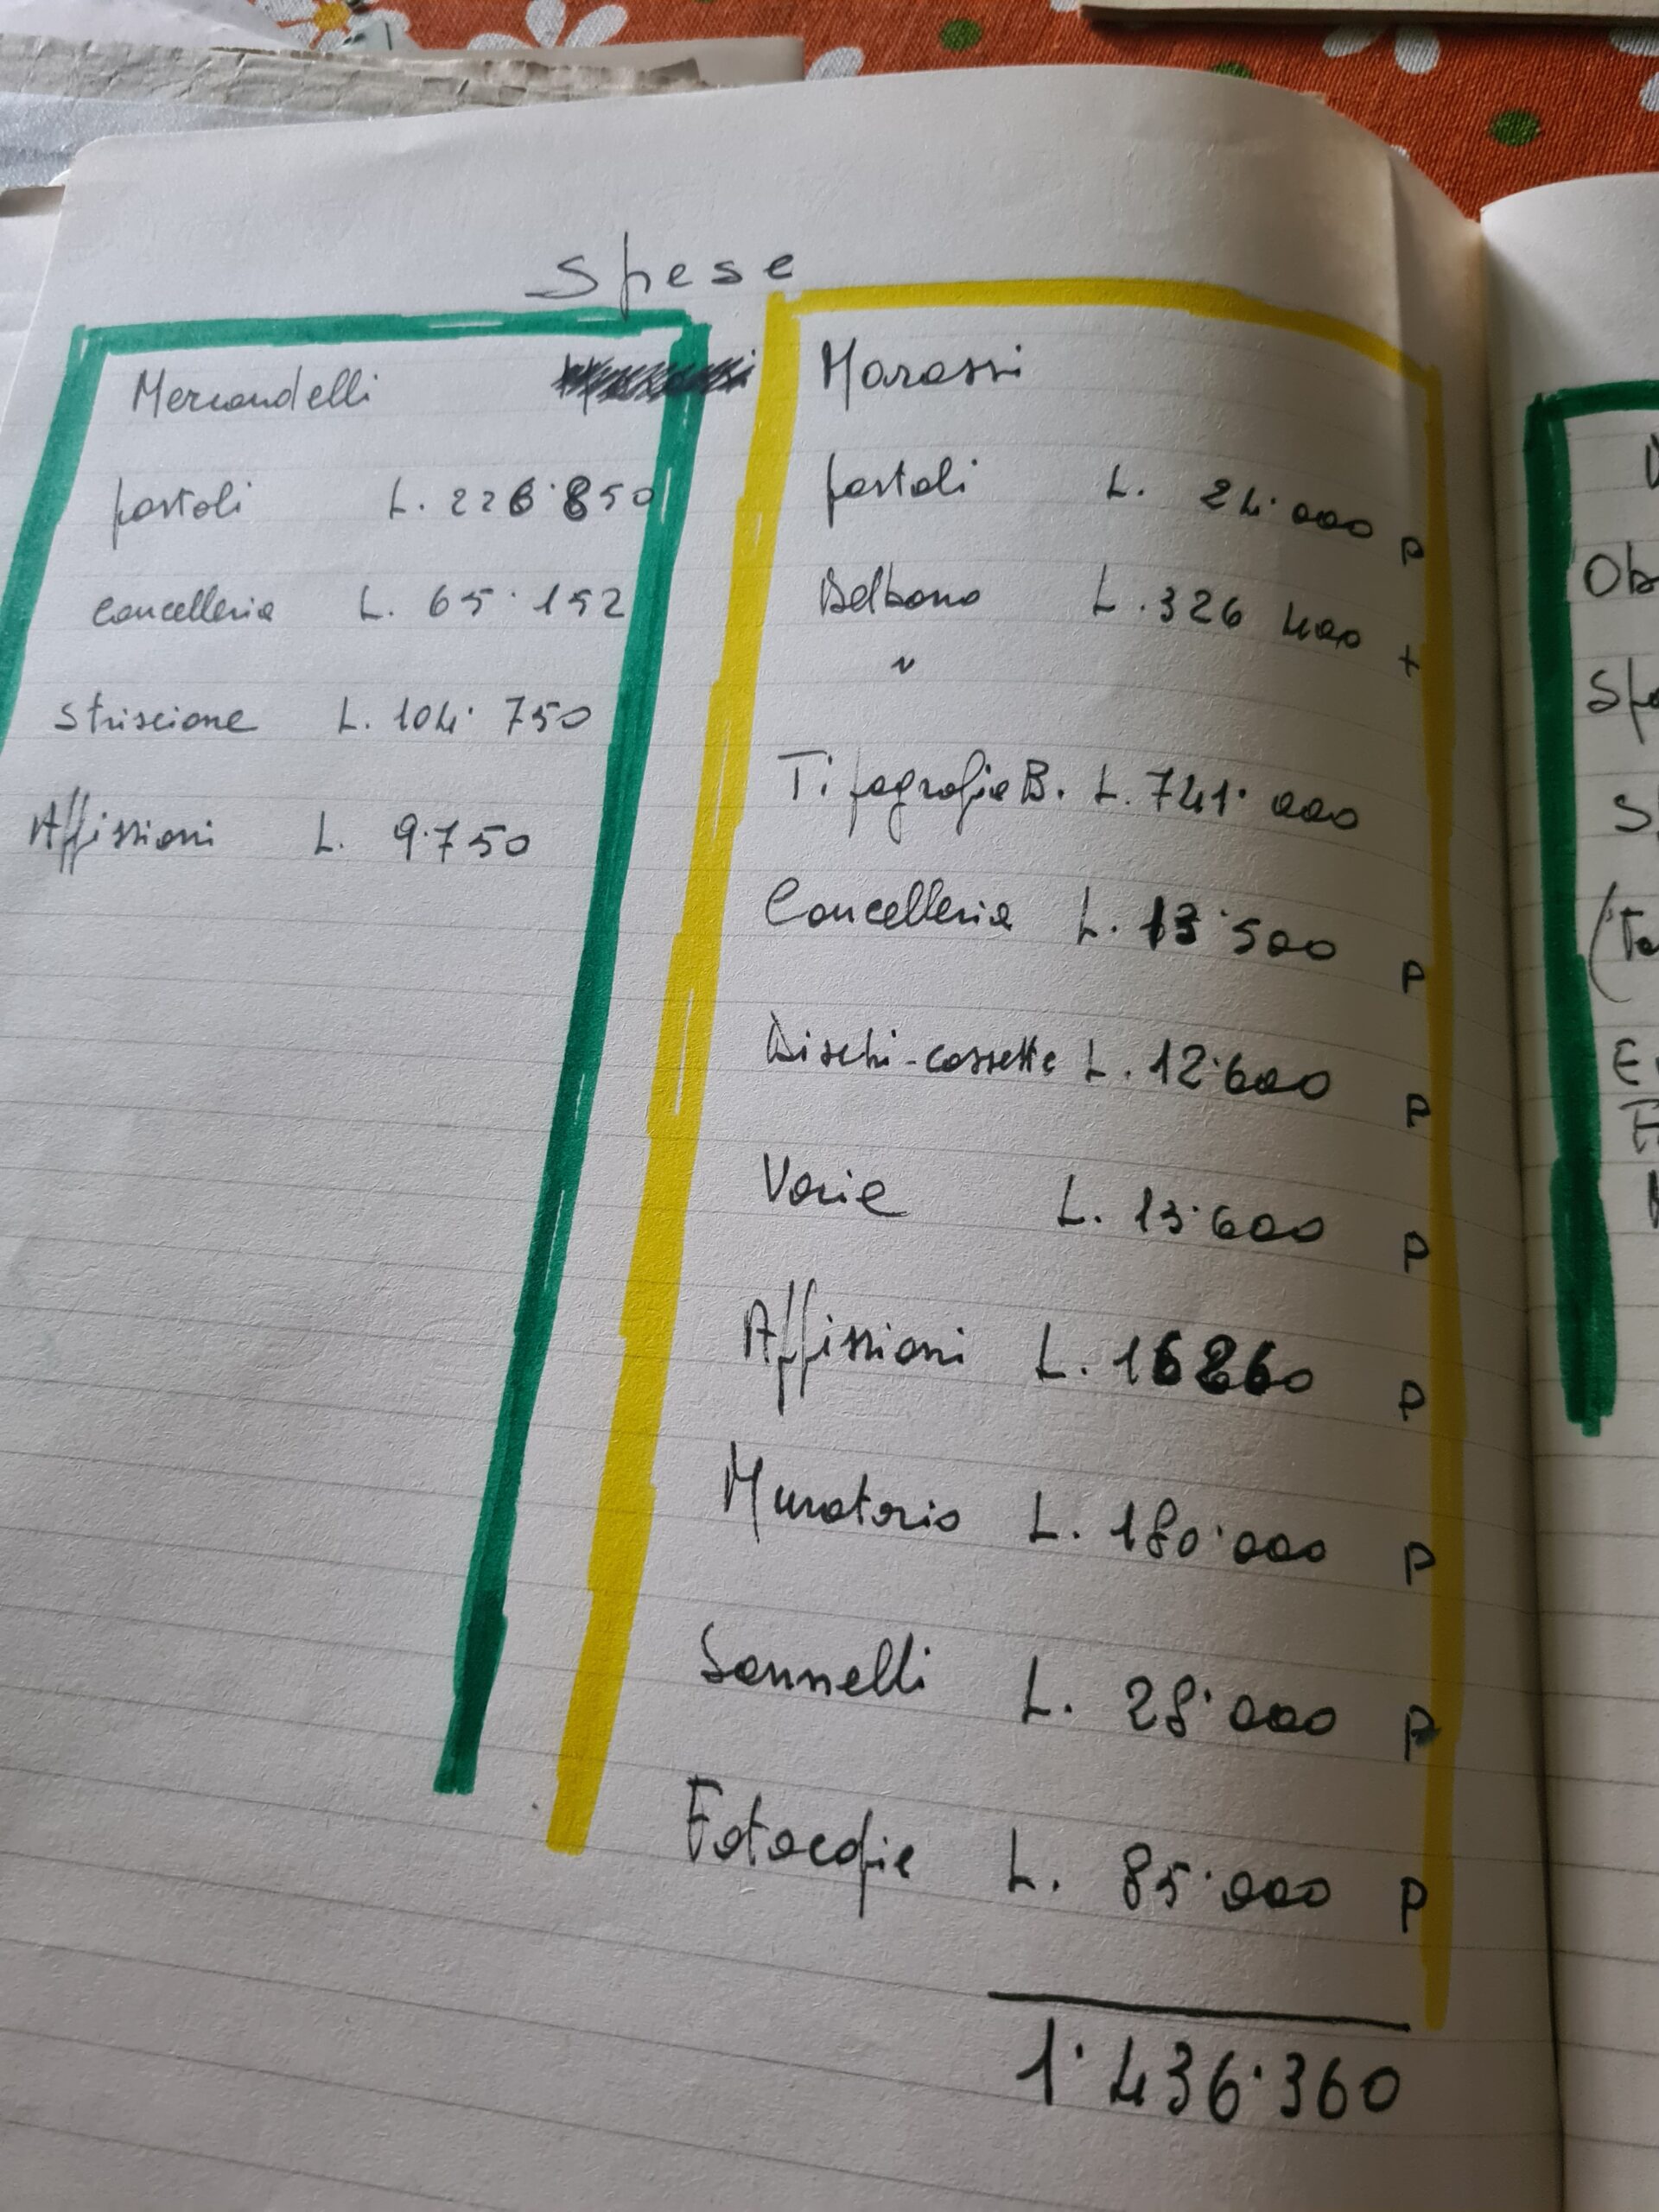 Spese
Mercandelli
postali L. 226·850
cancelleria L. 65·152
striscione L. 104·750
Affissioni L. 9·750
Marassi
postali L. 24·000 P
Delbono L. 326 400 +
"
Tipografia B. L. 741·000
Cancelleria L. 13·500 P
Dischi-cassette L. 12·600 P
Varie L. 13·600 P
Affissioni L. 16260 P
Muratorio L. 180·000 P
Sannelli L. 28·000 P
Fotocopie L. 85·000 P
1·436·360